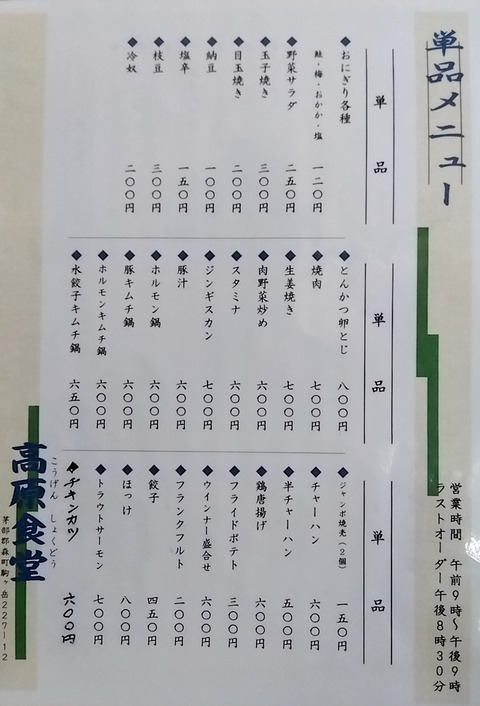 単品メニュー
営業時間 午前9時〜午後9時
ラストオーダー午後8時30分
単品
◆おにぎり各種
鮭・梅・おかか・塩 一二〇円
◆野菜サラダ 二五〇円
◆玉子焼き 三〇〇円
◆目玉焼き 二〇〇円
◆納豆 一〇〇円
◆塩辛 一五〇円
◆枝豆 三〇〇円
◆冷奴 二〇〇円
単品
◆とんかつ卵とじ 八〇〇円
◆焼肉 七〇〇円
◆生姜焼き 七〇〇円
◆肉野菜炒め 六〇〇円
◆スタミナ 六〇〇円
◆ジンギスカン 七〇〇円
◆豚汁 六〇〇円
◆ホルモン鍋 六〇〇円
◆豚キムチ鍋 六〇〇円
◆ホルモンキムチ鍋 六〇〇円
◆水餃子キムチ鍋 六五〇円
単品
◆ジャンボ焼売(2個) 一五〇円
◆チャーハン 六〇〇円
◆半チャーハン 五〇〇円
◆鶏唐揚げ 六〇〇円
◆フライドポテト 三〇〇円
◆ウインナー盛合せ 六〇〇円
◆フランクフルト 二〇〇円
◆餃子 四五〇円
◆ほっけ 八〇〇円
◆トラウトサーモン 七〇〇円
◆チキンカツ 六〇〇円
こうげん しょくどう
高原食堂
茅部郡森町駒ヶ岳227-12